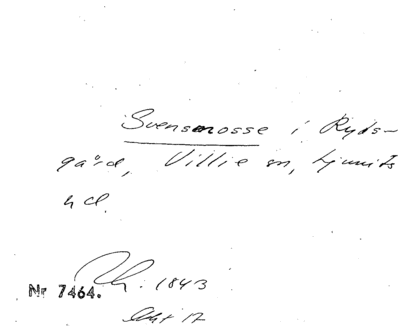 Svensmosse i Ryds-
gård, Villie sn, Ljunits
hd.
1843
Nr 7464.
akt 17